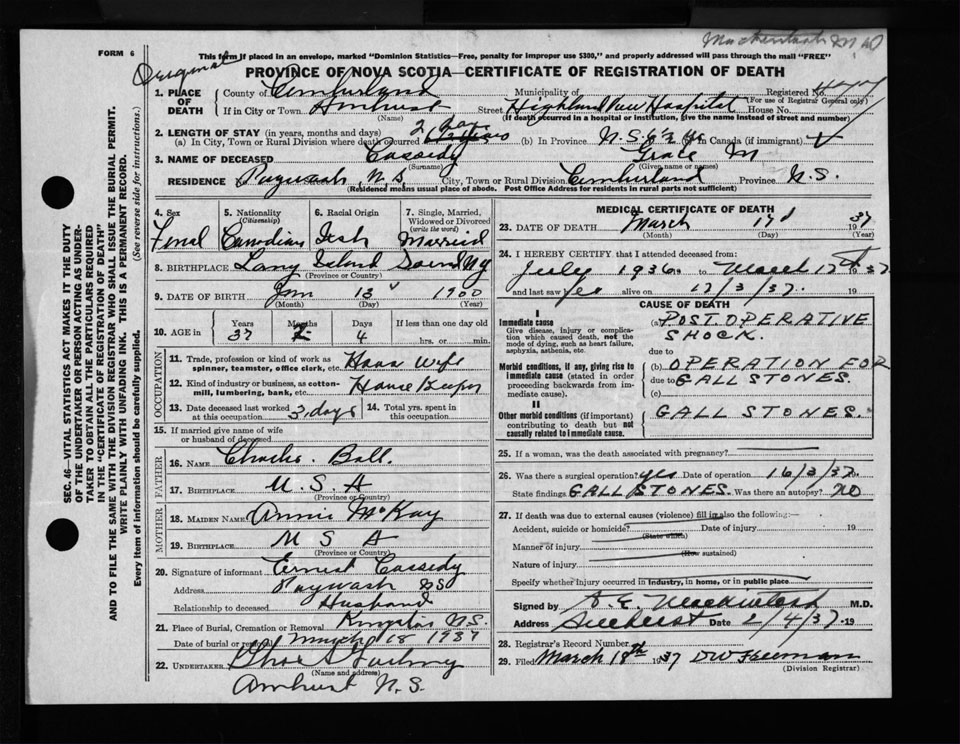 Mackintosh M D
FORM 6
This form if placed in an envelope, marked "Dominion Statistics—Free, penalty for improper use $300," and properly addressed will pass through the mail "FREE"
Original
PROVINCE OF NOVA SCOTIA—CERTIFICATE OF REGISTRATION OF DEATH
1. PLACE OF DEATH
County of Cumberland Municipality of Registered No.
(For use of Registrar General only)
If in City or Town Amherst Street Highland View Hospital House No.
(Name) (If death occurred in a hospital or institution, give the name instead of street and number)
2. LENGTH OF STAY (in years, months and days)
(a) In City, Town or Rural Division where death occurred 2 days (b) In Province N.S. 6½ yrs (c) In Canada (if immigrant)
3. NAME OF DECEASED Cassedy Grace M
(Surname) (Given name or names)
RESIDENCE Pugwash, N.S. City, Town or Rural Division Cumberland Province N.S.
(Residence means usual place of abode. Post Office Address for residents in rural parts not sufficient)
SEC. 46—VITAL STATISTICS ACT MAKES IT THE DUTY
OF THE UNDERTAKER OR PERSON ACTING AS UNDER-
TAKER TO OBTAIN ALL THE PARTICULARS REQUIRED
IN THE "CERTIFICATE OF REGISTRATION OF DEATH"
AND TO FILE THE SAME WITH THE DIVISION REGISTRAR WHO SHALL ISSUE THE BURIAL PERMIT.
WRITE PLAINLY WITH UNFADING INK. THIS IS A PERMANENT RECORD.
Every item of information should be carefully supplied. (See reverse side for instructions.)
4. Sex 5. Nationality 6. Racial Origin 7. Single, Married,
(Citizenship) Widowed or Divorced
(write the word)
Femal Canadian Irsh Married
8. BIRTHPLACE Lang Island Sound N Y
(Province or Country)
9. DATE OF BIRTH Jan 13 1900
(Month) (Day) (Year)
10. AGE in Years Months Days If less than one day old
37 2 4 hrs. or min.
OCCUPATION
11. Trade, profession or kind of work as
spinner, teamster, office clerk, etc. Hous Wife
12. Kind of industry or business, as cotton-
mill, lumbering, bank, etc. House Keeper
13. Date deceased last worked
at this occupation 3 days
14. Total yrs. spent in
this occupation
15. If married give name of wife
or husband of deceased
FATHER
16. NAME Charles Ball.
17. BIRTHPLACE U.S.A
(Province or Country)
MOTHER
18. MAIDEN NAME Annie McKay
19. BIRTHPLACE U S A
(Province or Country)
20. Signature of informant Ernest Cassedy
Address Pugwash N S
Relationship to deceased Husband
21. Place of Burial, Cremation or Removal N.S
Date of burial or removal March 18 1937
22. UNDERTAKER
(Name and address)
Amherst N.S.
MEDICAL CERTIFICATE OF DEATH
23. DATE OF DEATH March 17 1937
(Month) (Day) (Year)
24. I HEREBY CERTIFY, that I attended deceased from:
July 1936 to March 17th 1937
and last saw her alive on 17/3/37. 19
CAUSE OF DEATH
I
Immediate cause
Give disease, injury or complica-
tion which caused death, not the
mode of dying, such as heart failure,
asphyxia, asthenia, etc.
(a) POST OPERATIVE
SHOCK.
due to
Morbid conditions, if any, giving rise to
immediate cause (stated in order
proceeding backwards from im-
mediate cause).
(b) OPERATION FOR
due to GALL STONES.
(c)
II
Other morbid conditions (if important)
contributing to death but not
causally related to immediate cause.
GALL STONES.
25. If a woman, was the death associated with pregnancy?
26. Was there a surgical operation? yes Date of operation 16/3/37.
State findings GALL STONES. Was there an autopsy? NO
27. If death was due to external causes (violence) fill in also the following:—
Accident, suicide or homicide? Date of injury 19
(State which)
Manner of injury
(How sustained)
Nature of injury
Specify whether injury occurred in industry, in home, or in public place
Signed by A. E. Mackintosh M.D.
Address Amherst Date 2/4/37. 19
28. Registrar's Record Number
29. Filed March 18th 1937 D W Freeman
(Division Registrar)